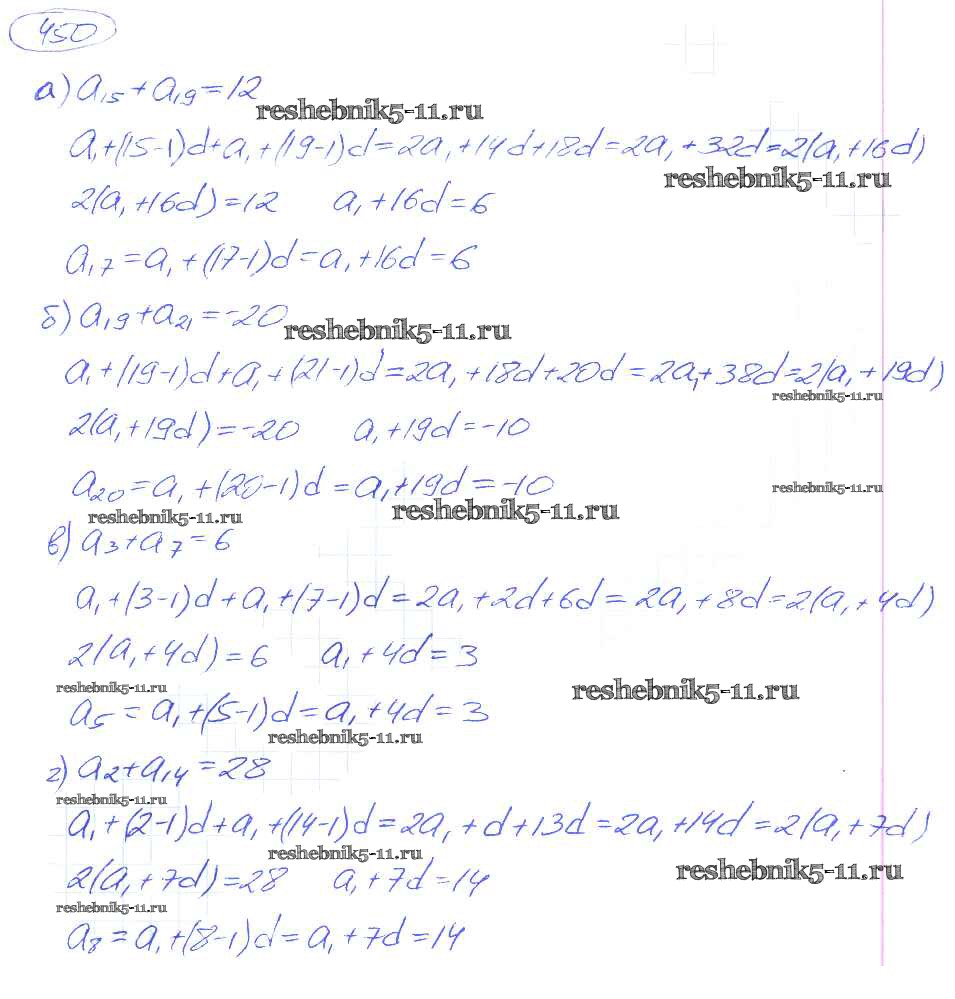 450
а) a₁₅+a₁₉=12
reshebnik5-11.ru
a₁+(15-1)d+a₁+(19-1)d=2a₁+14d+18d=2a₁+32d=2(a₁+16d)
reshebnik5-11.ru
2(a₁+16d)=12 a₁+16d=6
a₁₇=a₁+(17-1)d=a₁+16d=6
б) a₁₉+a₂₁=-20
reshebnik5-11.ru
a₁+(19-1)d+a₁+(21-1)d=2a₁+18d+20d=2a₁+38d=2(a₁+19d)
reshebnik5-11.ru
2(a₁+19d)=-20 a₁+19d=-10
a₂₀=a₁+(20-1)d=a₁+19d=-10
reshebnik5-11.ru
reshebnik5-11.ru
reshebnik5-11.ru
в) a₃+a₇=6
a₁+(3-1)d+a₁+(7-1)d=2a₁+2d+6d=2a₁+8d=2(a₁+4d)
2(a₁+4d)=6 a₁+4d=3
reshebnik5-11.ru
reshebnik5-11.ru
a₅=a₁+(5-1)d=a₁+4d=3
reshebnik5-11.ru
г) a₂+a₁₄=28
reshebnik5-11.ru
a₁+(2-1)d+a₁+(14-1)d=2a₁+d+13d=2a₁+14d=2(a₁+7d)
reshebnik5-11.ru
reshebnik5-11.ru
2(a₁+7d)=28 a₁+7d=14
reshebnik5-11.ru
a₈=a₁+(8-1)d=a₁+7d=14